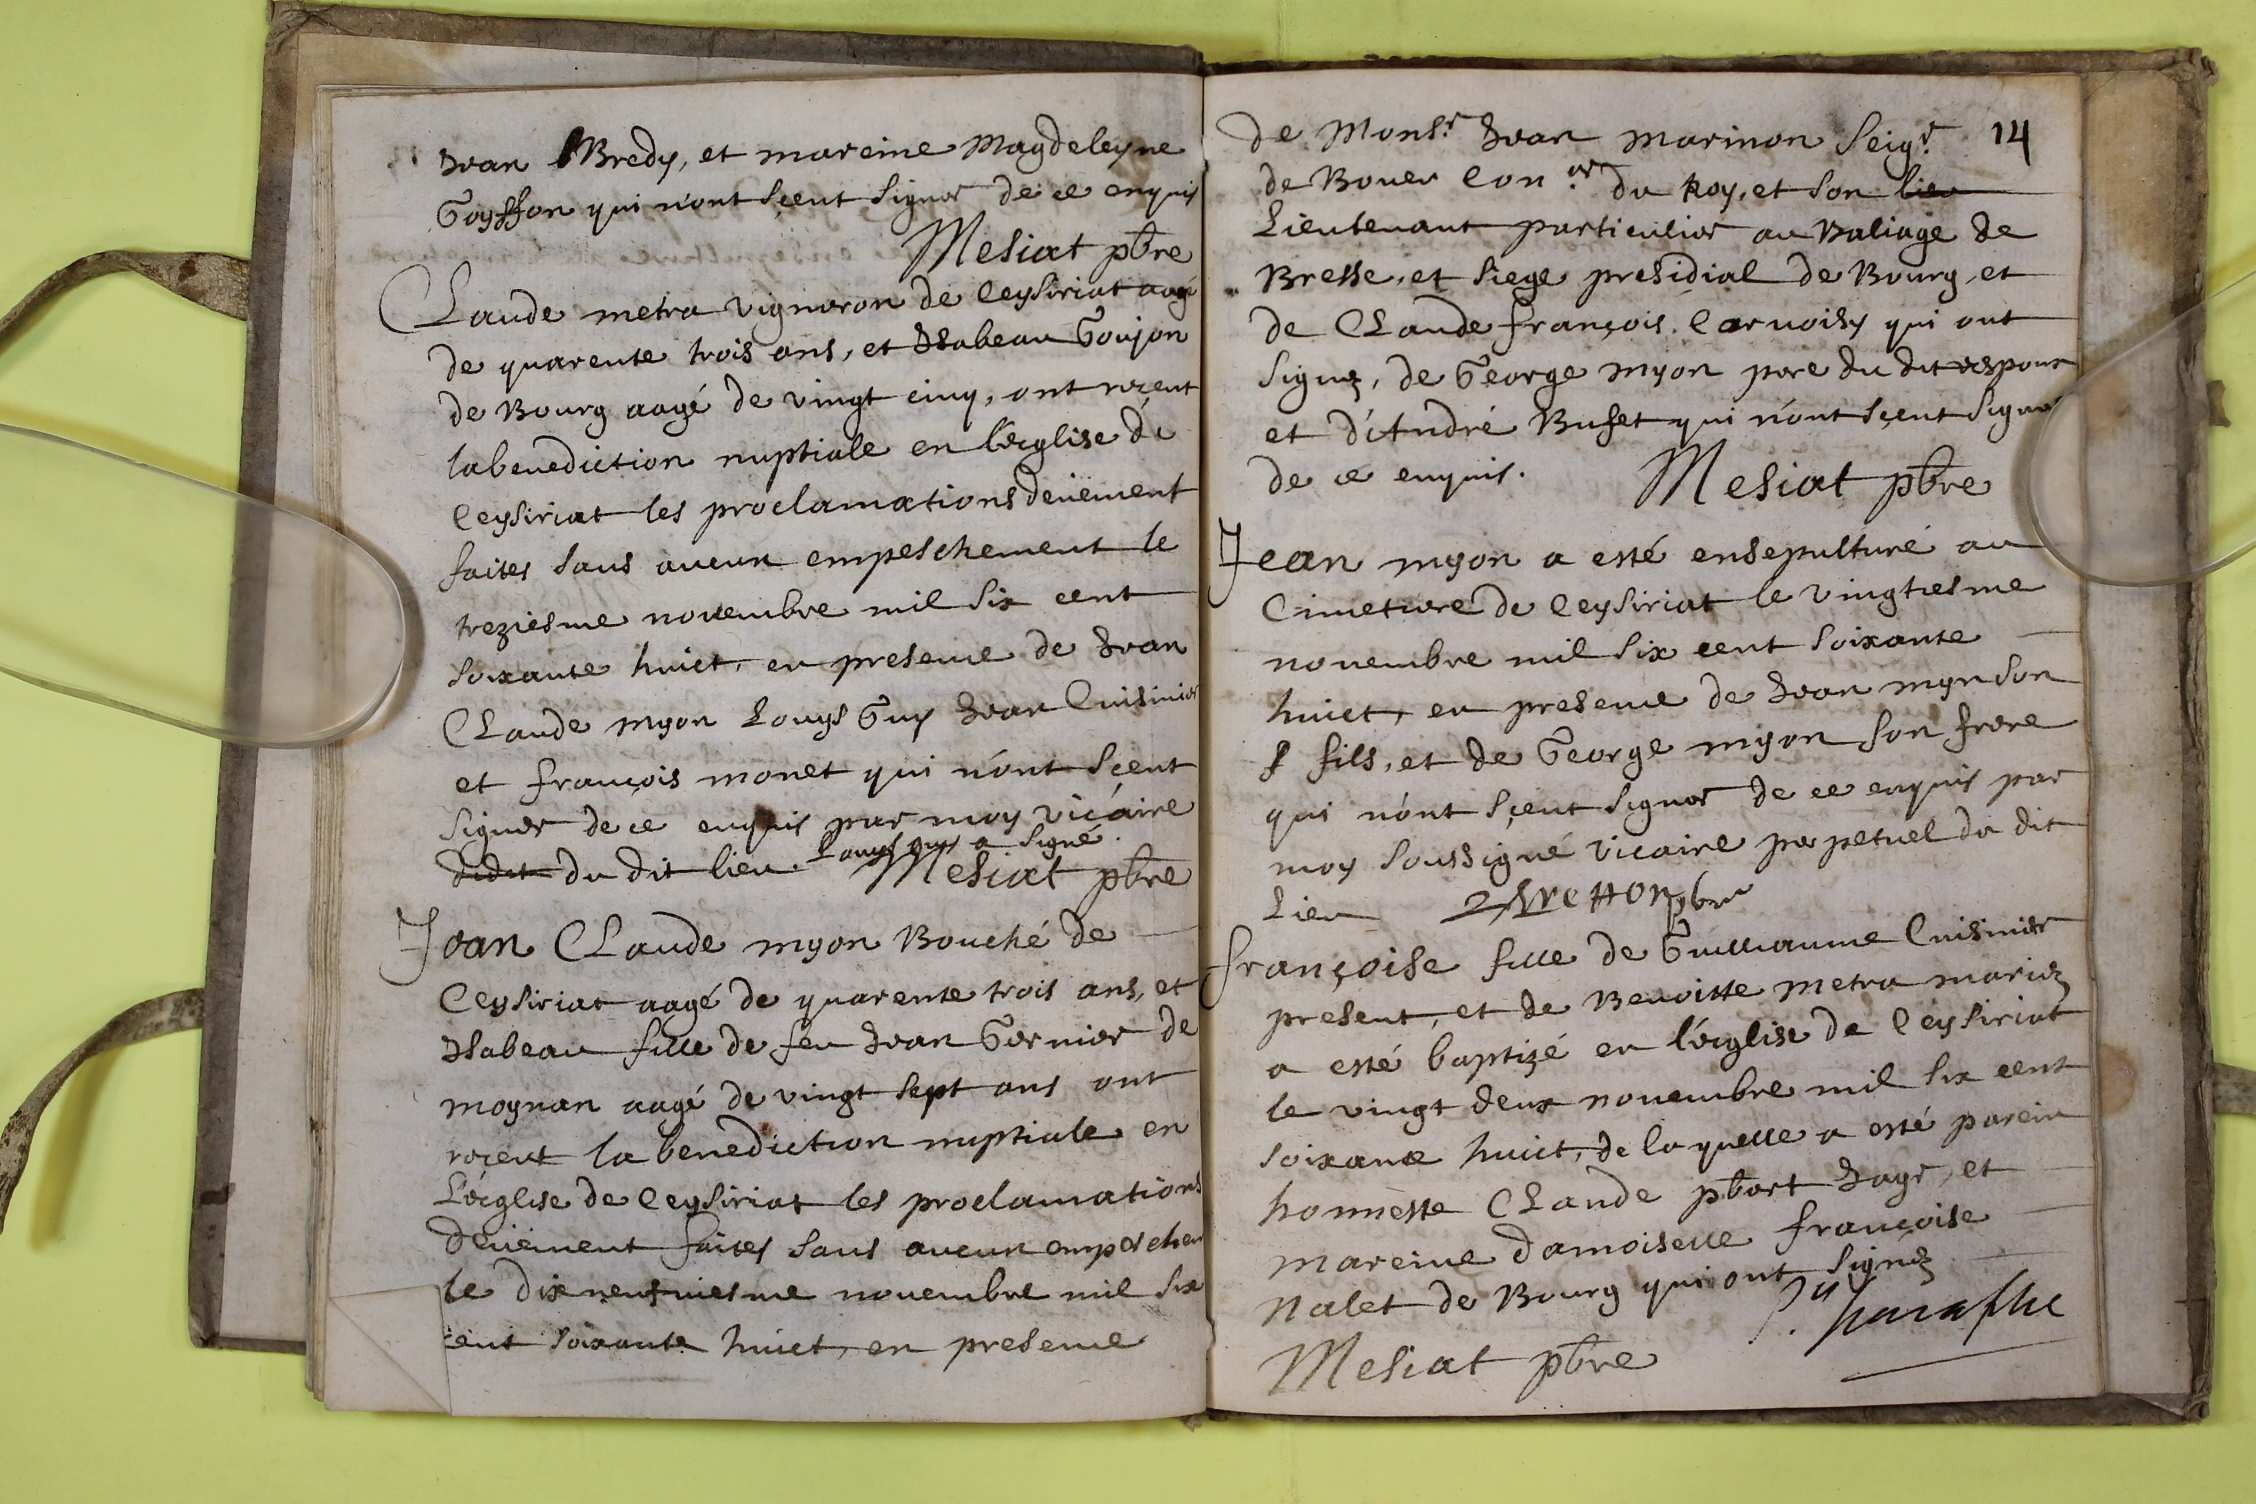 Jean Bredy, et mareine Magdeleyne
Goyffon qui n'ont sçeut signer de ce enquis
Mesiat pbre
Claude metra vigneron de Ceysiriat aagé
de quarente trois ans, et Isabeau Goujon
de Bourg aagé de vingt cinq, ont reçeut
la benediction nuptiale en l'eglise de
Ceysiriat les proclamations deuement
faites sans aucun empeschement le
treziesme novembre mil six cent
soixante huict, en presence de Jean
Claude myon Louys Guy Jean Cuisinier
et françois monet qui n'ont sçeut
signer de ce enquis par moy vicaire
dudit du dit lieu Louys guy a signé.
Mesiat pbre
Jean Claude myon Bouché de
Ceysiriat aagé de quarente trois ans, et
Isabeau fille de feu Jean Gernier de
moynan aagé de vingt sept ans ont
reçeut la benediction nuptiale en
l'eglise de Ceysiriat les proclamations
deuement faites sans aucun empeschem
le dix neufviesme novembre mil six
cent soixante huict, en presence
14
de Monsr. Jean marinon Seigr.
de Bouer Coner. du Roy, et son lieu
Lieutenant particulier au Baliage de
Bresse, et siege presidial de Bourg, et
de Claude françois Cornoisy qui ont
signez, de George myon pere du dit espoux
et d'André Bufet qui n'ont sçeut signer
de ce enquis.
Mesiat pbre
Jean myon a esté ensepulturé au
Cimetiere de Ceysiriat le vingtiesme
novembre mil six cent soixante
huict, en presence de Jean myon son
f fils, et de George myon son frere
qui n'ont sçeut signer de ce enquis par
moy soussigné vicaire perpetuel du dit
Lieu
pbre
françoise fille de Guilliaume Cuisinier
present, et de Benoitte metra mariez
a esté baptizé en l'eglise de Ceysiriat
le vingt deux novembre mil six cent
soixante huict, de laquelle a esté parein
honneste Claude, et
mareine damoiselle françoise
Nalet de Bourg qui ont signez
Mesiat pbre